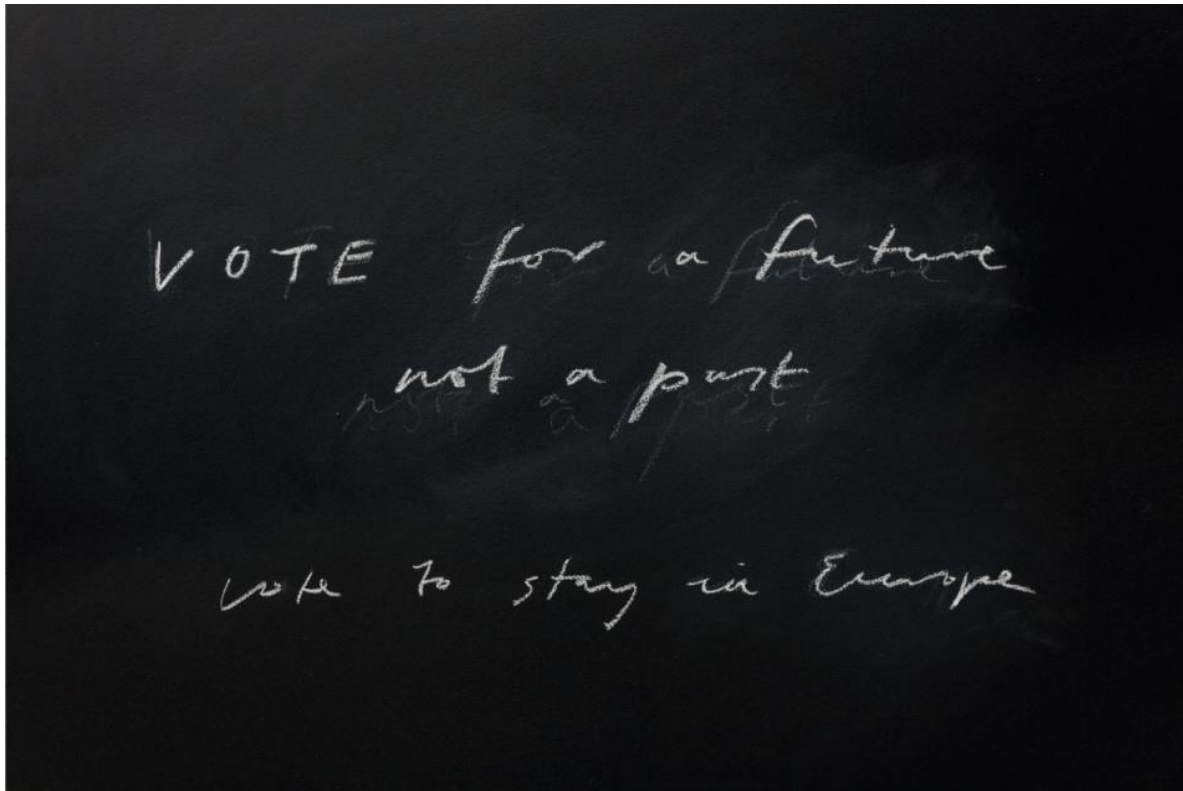 VOTE for a future
not a past
vote to stay in Europe